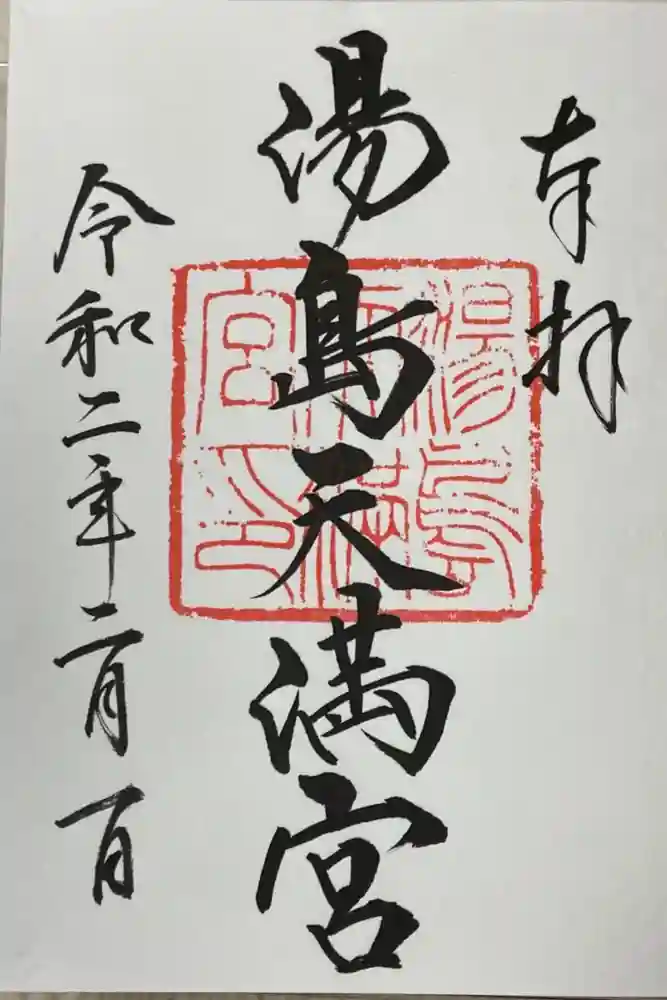 奉拝
湯島天満宮
湯島天満宮印
令和二年二月一日